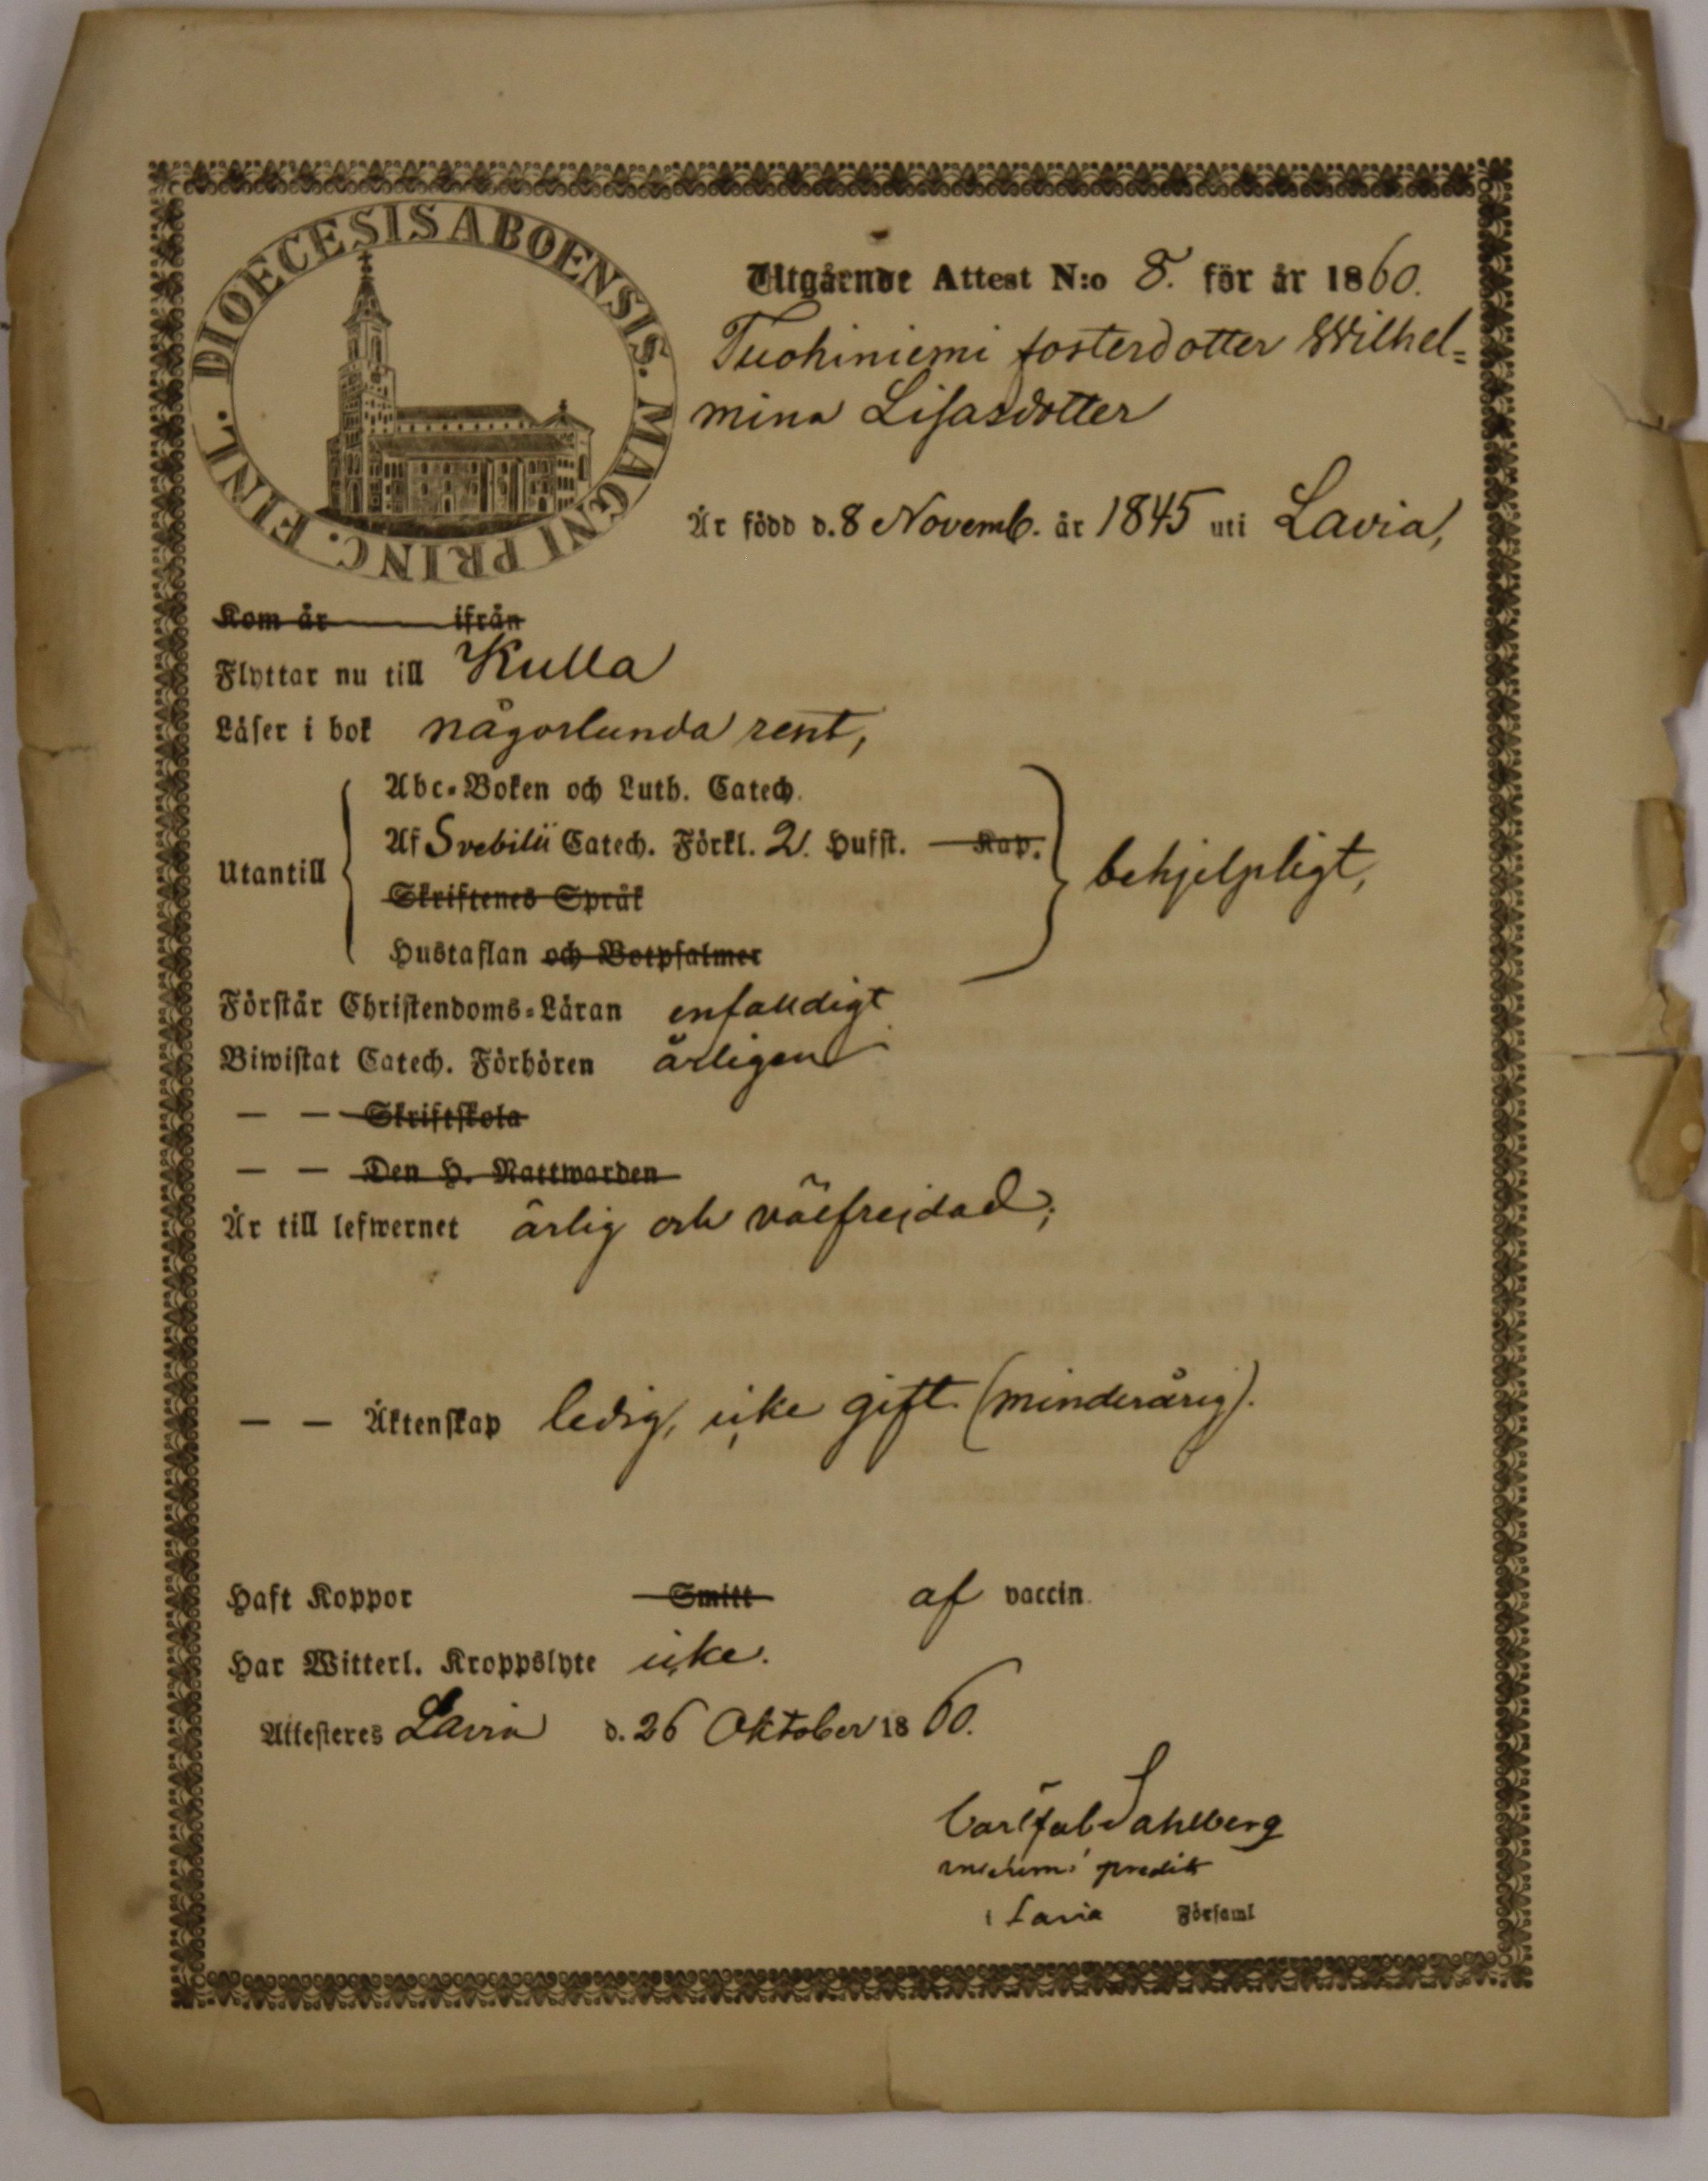 DIOECESIS ABOENSIS. MAGNI PRINC. FINL.
Utgående Attest N:o 8. för år 1860.
Tuohiniemi fosterdotter Wilhel=
mina Lisasdotter
Är född d. 8 Novemb. år 1845 uti Lavia,
Kom år ifrån
Flyttar nu till Kulla
Läser i bok någorlunda rent,
Abc-Boken och Luth. Catech.
Af Svebilii Catech. Förkl. 2. Hufst. Kap.
Utantill behjelpligt,
Skriftenes Språk
Hustaflan och Botpsalmer
Förstår Christendoms-Läran enfaldigt
Biwistat Catech. Förhören årligen
— — Skriftskola
— — Den H. Nattwarden
Är till lefwernet ärlig och välfrejdad;
— — Äktenskap ledig, icke gift (minderårig).
Haft Koppor Smitt af vaccin.
Har Witterl. Kroppslyte icke.
Attesteres Lavia d. 26 Oktober 1860.
Carl Jak Sahlberg
predik
i Lavia Församl